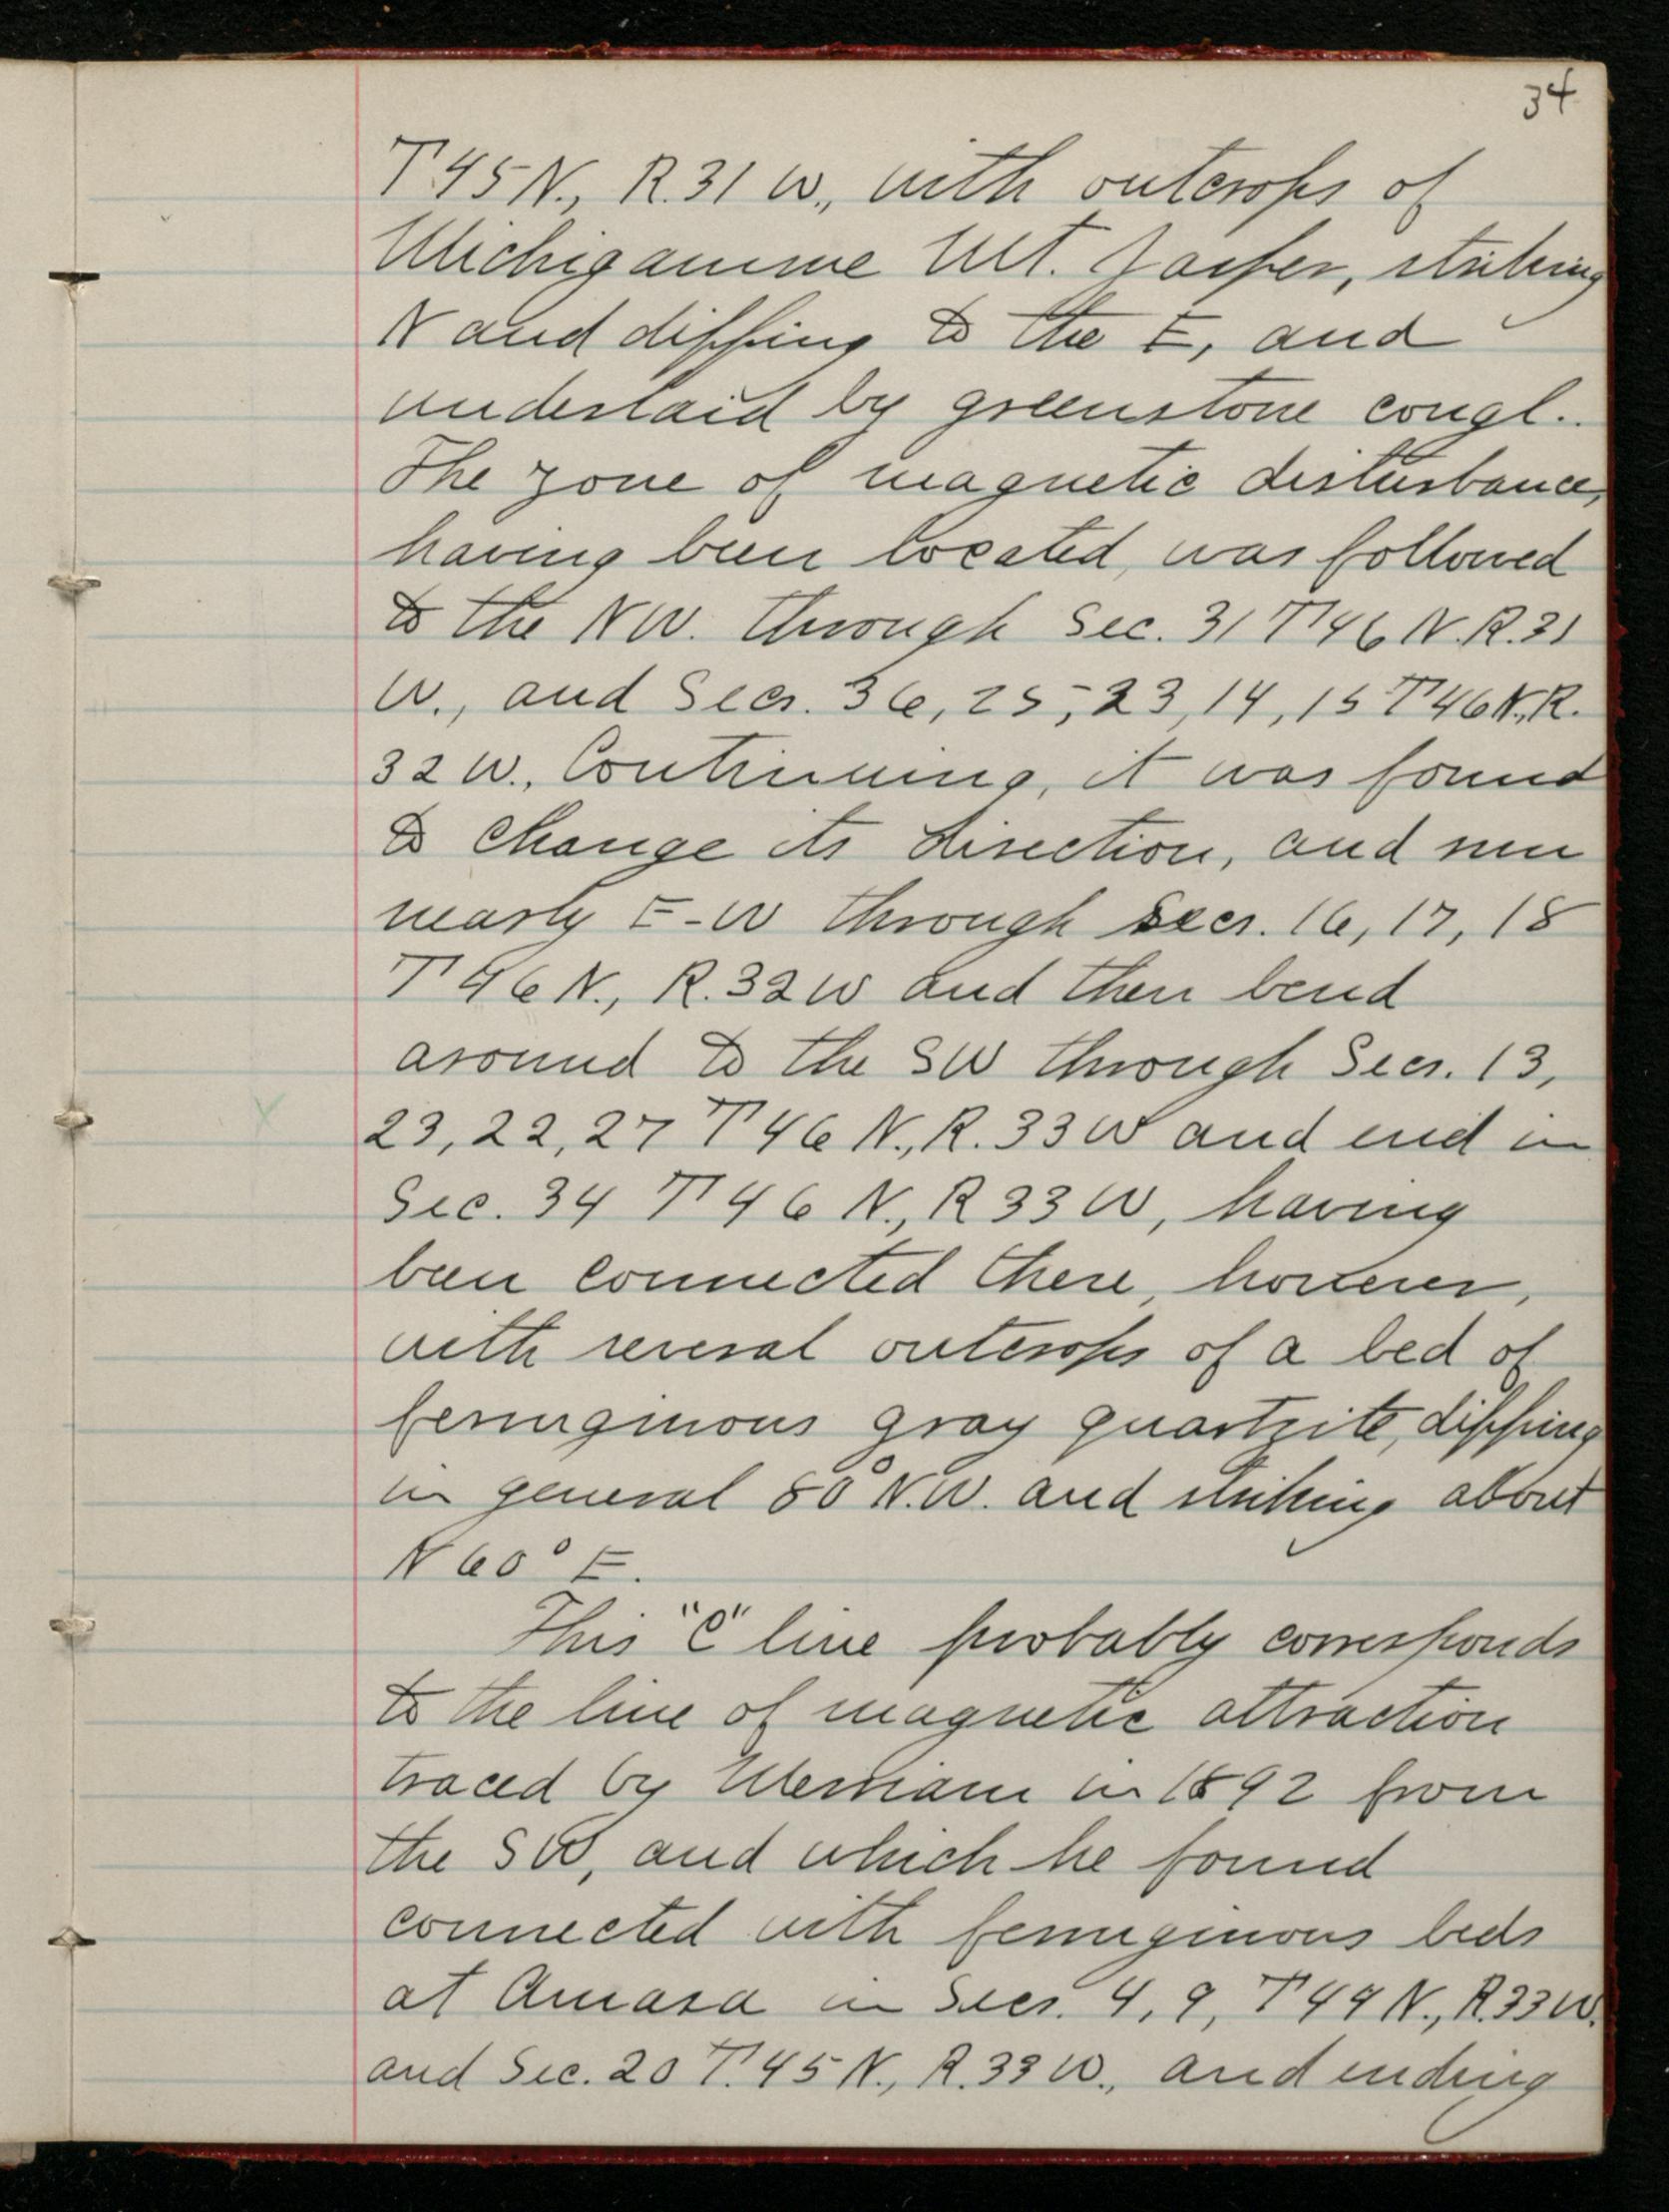 34
T.45N., R.31 W., with outcrops of
Michigamme Mt. Jasper, striking
N and dipping to the E, and
underlaid by greenstone congl..
The zone of magnetic disturbance,
having been located, was followed
to the NW. through Sec. 31 T46 N.R.31
W., and Secs. 36, 25, 23, 14, 15 T46N.,R.
32 W., Continuing, it was found
to change its direction, and run
nearly E-W through Secs. 16, 17, 18
T46N., R.32W and then bend
around to the SW through Secs. 13,
23, 22, 27 T46 N., R.33W and end in
Sec. 34 T46 N., R33W, having
been connected there, however,
with several outcrops of a bed of
ferruginous gray quartzite, dipping
in general 80° N.W. and striking about
N 60° E.
This "C" line probably corresponds
to the line of magnetic attraction
traced by Merriam in 1892 from
the SW, and which he found
connected with ferruginous beds
at Amasa in Secs. 4, 9, T44N., R.33W.
and Sec. 20 T.45N., R.33W., and ending